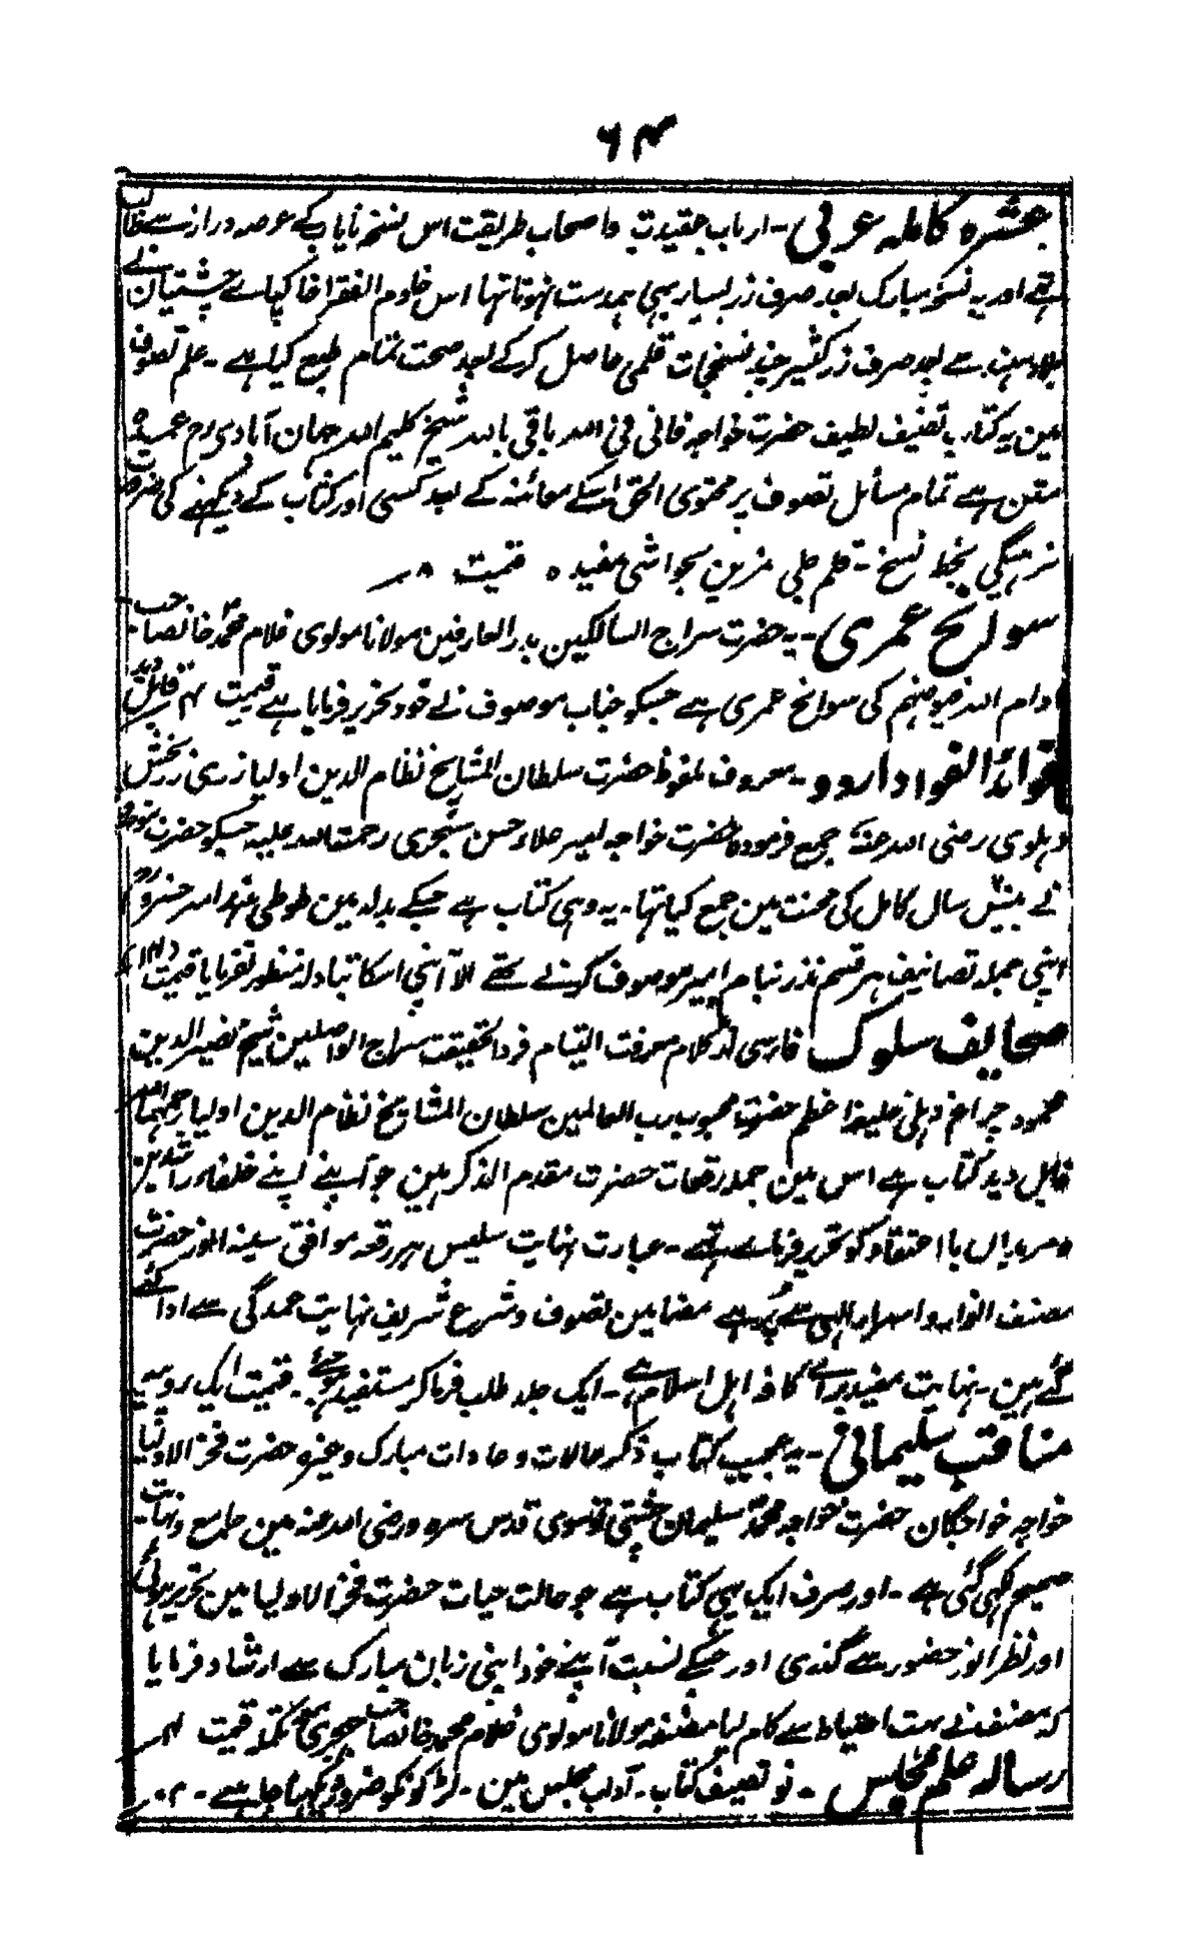 ۶۴
عشرہ کاملہ عربی ۔ ارباب عقیدت واصحاب طریقت اس نسخہ نایاب کے عرصہ دراز سے طالب
تھے اور یہ نسخہ مبارک بعد صرف زر بسیار بھی ہمدست نہوتا تہا اس خادم الفقرا خاکپائے چشتیان نے
بلاد ہند سے بعد صرف زر کثیر چند نسخجات قلمی حاصل کرکے بعد صحت تمام طبع کیا ہے ۔ علم تصوف
مین یہ کتاب تصنیف لطیف حضرت خواجہ فانی فی اللہ باقی باللہ شیخ کلیم اللہ جہان آبادی رح عمدہ
متن ہے تمام مسائل تصوف پر محتوی الحق اسکے معائنہ کے بعد کسی اور کتاب کے دیکہنے کی ضرورت
نرہیگی بخط نسخ ۔ قلم جلی مزین بحواشی مفیدہ قیمت ۸ر
سوانح عمری ۔ یہ حضرت سراج السالکین بدر العارفین مولانا مولوی غلام محمد خانصاحب
دام اللہ فیوضہم کی سوانح عمری ہے جسکو جناب موصوف نے خود تحریر فرمایا ہے قیمت ۴ر قابل دید
فوائد الفواد اردو ۔ معروف ملفوظ حضرت سلطان المشایخ نظام الدین اولیا زری زر بخش
دہلوی رضی اللہ عنہ جمع فرمودہ حضرت خواجہ امیر علاء حسن سنجری رحمۃ اللہ علیہ جسکو حضرت موصوف
نے بیس سال کامل کی محنت مین جمع کیا تہا ۔ یہ وہی کتاب ہے جسکے بدلہ مین طوطی ہند امیر خسرو رح
اپنی جملہ تصانیف ہر قسم نذر بنام امیر موصوف کرتے تھے الا آپنی اسکا تبادلہ منظور نفرمایا قیمت
صحایف سلوک فارسی از کلام معرفت التیام فرد الحقیقت سراج الواصلین شیخ نصیر الدین
محمود چراغ دہلی خلیفہ اعظم حضرت محبوب رب العالمین سلطان المشایخ نظام الدین اولیا رحمہما اللہ
قابل دید کتاب ہے اس مین جملہ رقعات حضرت مقدم الذکر ہین جو آپنے اپنے خلفاء راشدین
ومریدان با اعتقاد کو تحریر فرمائے تھے ۔ عبارت نہایت سلیس ہر رقعہ موافق سینہ انور حضرت
مصنف انوار و اسرار الہی سے پُر ہے مضامین تصوف و شرع شریف نہایت عمدگی سے ادا کئے
گئے ہین ۔ نہایت مفید برائے کافہ اہل اسلام ہے ۔ ایک جلد طلب فرماکر مستفید ہوجئے ۔ قیمت ایک روپیہ
مناقب سلیمانی ۔ یہ عجیب کتاب ذکر حالات و عادات مبارک وغیرہ حضرت فخر الاولیا
خواجہ خواجگان حضرت خواجہ محمد سلیمان چشتی تونسوی قدس سرہ ورضی اللہ عنہ مین جامع ونہایت
صحیح لکہی گئی ہے ۔ اور صرف ایک یہی کتاب ہے جو حالت حیات حضرت فخر الاولیا مین تحریر ہوئی
اور نظر انور حضور سے گذری اور جسکے نسبت آپنے خود اپنی زبان مبارک سے ارشاد فرمایا
کہ مصنف نے بہت احتیاط سے کام لیا مصنفہ مولانا مولوی غلام محمد خانصاحب جہجری تکملہ قیمت ۴ر
رسالہ علم مجلس ۔ نو تصنیف کتاب ۔ آداب مجلس مین ۔ لڑکونکو ضرور دیکہنا چاہئے ۔ ۲ر